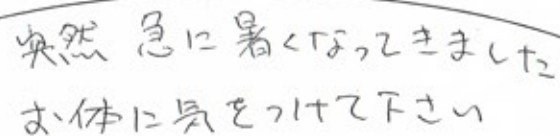 突然 急に暑くなってきました
お体に気をつけて下さい